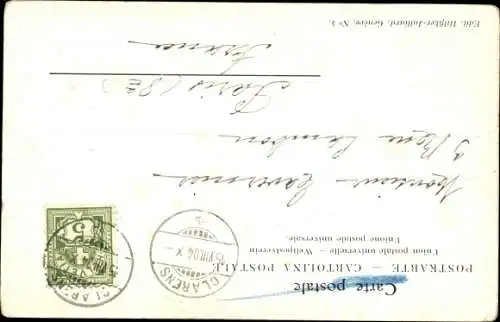 Carte postale
POSTKARTE — CARTOLINA POSTALE
Union postale universelle — Weltpostverein
Unione postale universale.
CLARENS
15.VIII.04.X
CLARENS
5
Monsieur
3 Rue Cambon
Paris (8e)
France
Edit. Höflier-Julliard, Genève, No 1.